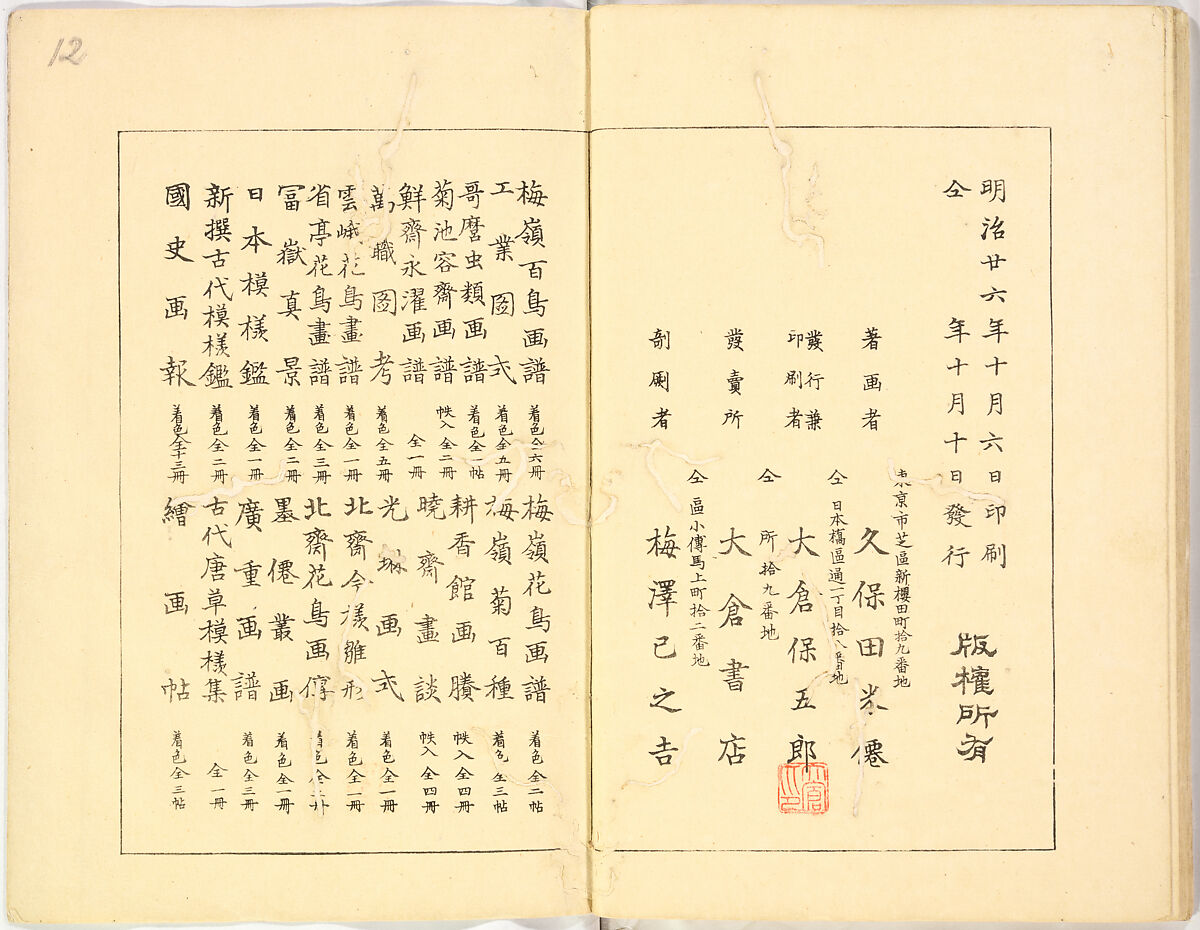 12
明治廿六年十月六日印刷
仝 年十月十日發行
版權所有
東京市芝區新櫻田町拾九番地
著画者 久保田米僊
仝 日本橋區通一丁目拾八番地
發行兼
印刷者 大倉保五郎
仝 所拾九番地
發賣所 大倉書店
仝 區小傳馬上町拾二番地
剞劂者 梅澤巳之吉
梅嶺百鳥画譜 着色全六冊
工業圖式 着色全五冊
哥麿虫類画譜 着色全一帖
菊池容齋画譜 帙入全二冊
鮮齋永濯画譜 全一冊
萬職圖考 着色全五冊
雲峨花鳥畫譜 着色全一冊
省亭花鳥畫譜 着色全三冊
冨嶽真景 着色全二冊
日本模様鑑 着色全一冊
新撰古代模様鑑 着色全二冊
國史画報 着色全十三冊
梅嶺花鳥画譜 着色全二帖
梅嶺菊百種 着色全三帖
耕香館画賸 帙入全四冊
曉齋畫談 帙入全四冊
光琳画式 着色全一冊
北齋今様雛形 着色全一冊
北齋花鳥画傳 着色全二冊
墨僊叢画 着色全一冊
廣重画譜 着色全三冊
古代唐草模様集 全一冊
繪画帖 着色全三帖